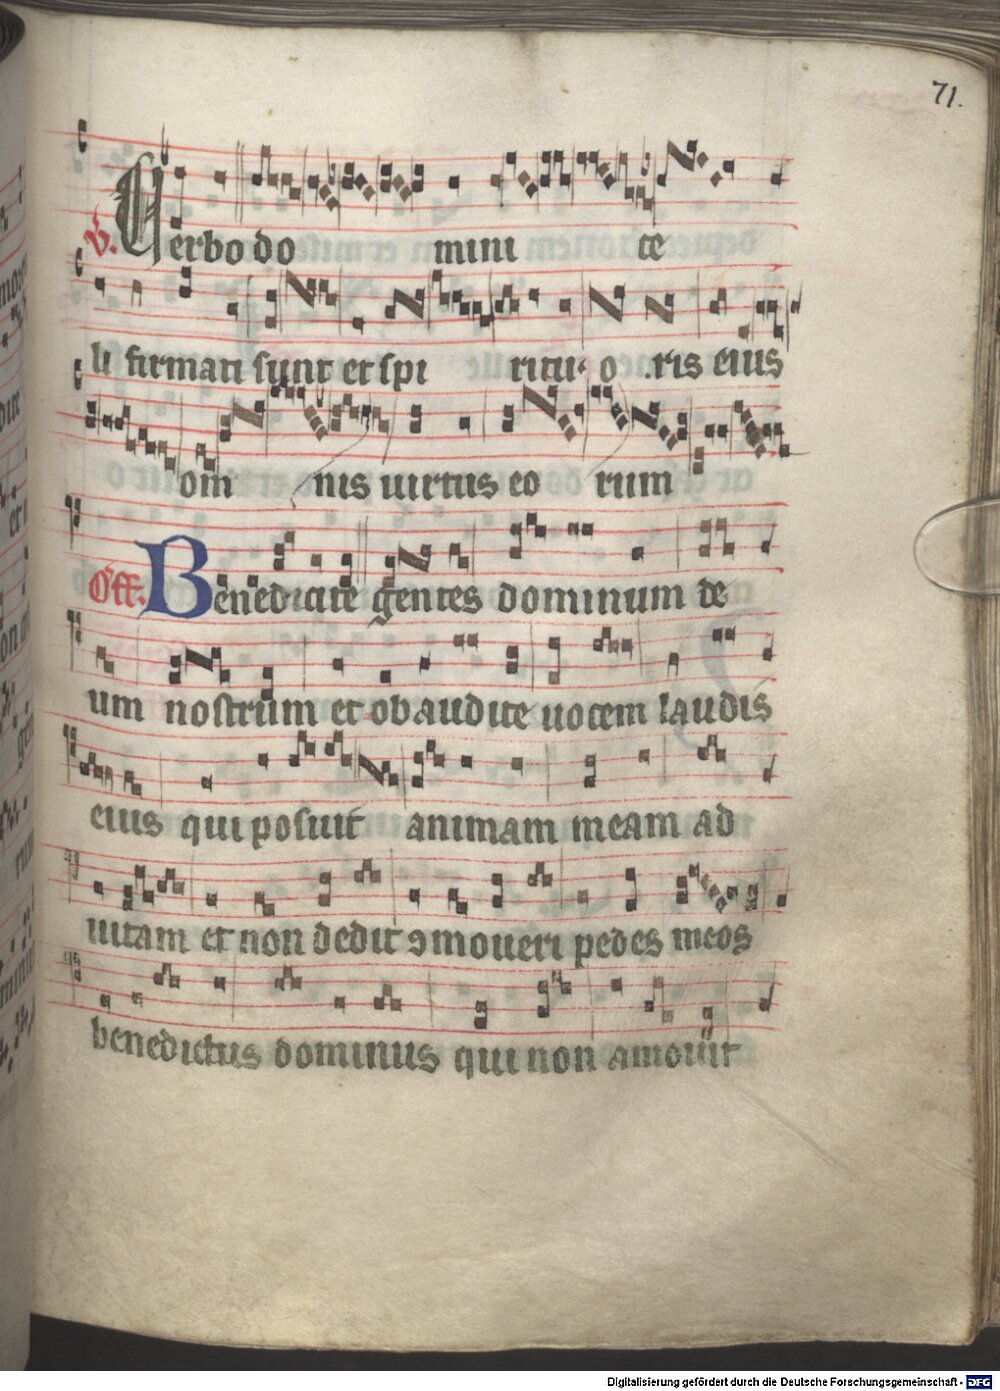 71.
V. Verbo do mini ce
li firmati sunt et spi ritu o ris eius
om nis uirtus eo rum
Off. Benedicite gentes dominum de
um nostrum et obaudite uocem laudis
eius qui posuit animam meam ad
uitam et non dedit ꝯmoueri pedes meos
benedictus dominus qui non amouit
Digitalisierung gefördert durch die Deutsche Forschungsgemeinschaft - DFG